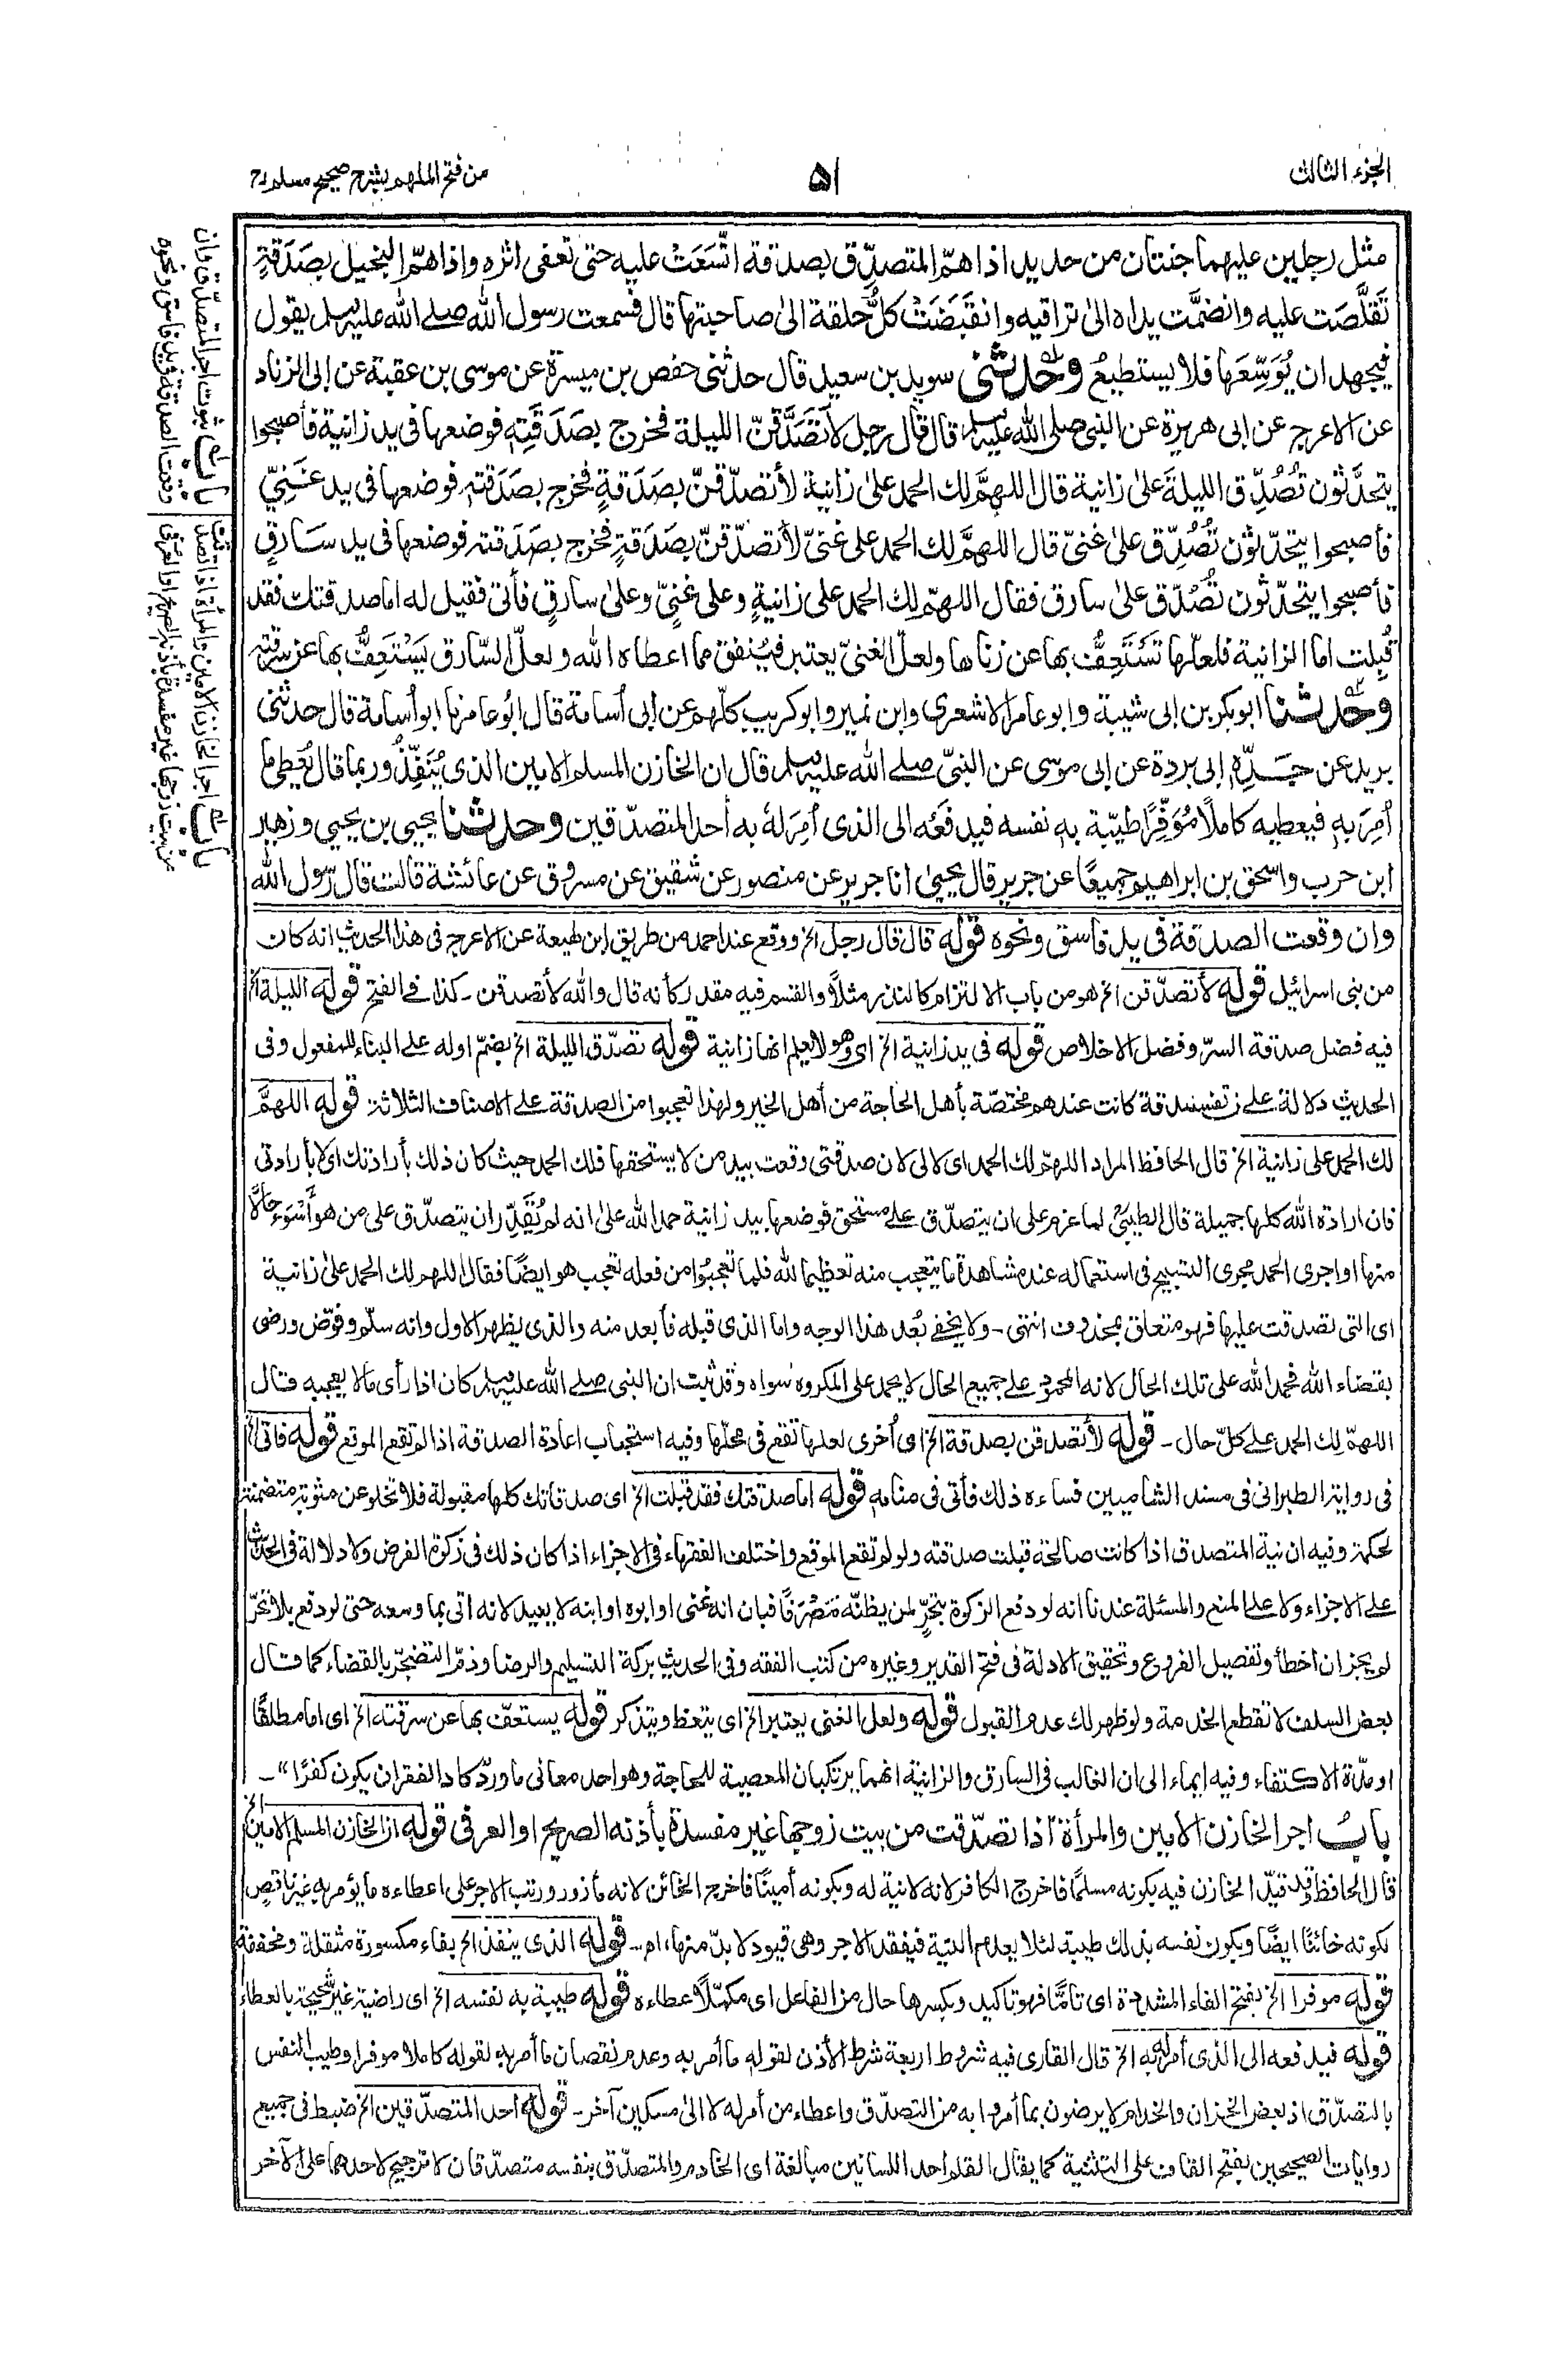 الجزء الثالث
٥١
من فتح الملهم بشرح صحيح مسلم ج٣
مثل رجلين عليهما جنتان من حديد اذا همّ المتصدّق بصدقة اتّسَعَتْ عليه حتى تعفى اثره واذا همّ البخيل بصَدَقَةٍ
تَقَلَّصَت عليه وانضمَّت يداه الىٰ تراقيه وانقَبَضَتْ كلُّ حلقة الىٰ صاحبتها قال فسمعت رسول الله صلے الله عليه وسلم يقول
فيجهد ان يُوَسِّعَها فلا يستطيعُ وحدثنى سويد بن سعيد قال حدثنى حفص بن ميسرة عن موسى بن عقبة عن ابى الزناد
عن الاعرج عن ابى هريرة عن النبى صلى الله عليه وسلم قال قال رجل لأتَصَدَّقَنّ الليلة فخرج بصَدَقَتِه فوضعها فى يد زانية فأصبحوا
يتحدَّثون تُصُدِّق الليلةَ علىٰ زانية قال اللهمَّ لك الحمد علىٰ زانية لأتصدّقنّ بصَدَقةٍ فخرج بصَدَقته فوضعها فى يد غَنِيّ
فأصبحوا يتحدّثون تُصُدِّق علىٰ غنىّ قال اللهمَّ لك الحمد على غنىّ لأتصدّقنّ بصَدَقةٍ فخرج بصَدَقته فوضعها فى يد سَارقٍ
فأصبحوا يتحدّثون تُصُدّق علىٰ سارق فقال اللهمّ لك الحمد على زانيةٍ وعلى غنىّ وعلىٰ سارقٍ فأتى فقيل له اما صدقتك فقد
قُبِلت اما الزانية فلعلّها تَسْتَعِفُّ بها عن زناها ولعلّ الغنىّ يعتبر فيُنفق مما اعطاه الله ولعلّ السّارق يَسْتَعِفُّ بها عن سرقته
وحدثنا ابو بكر بن ابى شيبة وابو عامر الاشعرى وابن نمير وابو كريب كلّهم عن ابى أسامة قال ابُو عامر نا ابو أسامة قال حدثنى
بريد عن جَدِّهٖ ابى بردة عن ابى موسى عن النبىّ صلے الله عليه وسلم قال ان الخازن المسلم الامين الذى يُنَفِّذُ وربما قال يُعْطِى ما
أُمِرَ بِهٖ فيعطيه كاملًا مُوَفَّرًا طيّبة بهٖ نفسه فيدفعُه الى الذى أُمِرَ لهٗ به أحد المتصدّقين وحدثنا يحيى بن يحيى وزهير
ابن حرب واسحٰق بن ابراهيم جميعًا عن جرير قال يحيىٰ انا جرير عن منصور عن شقيق عن مسروق عن عائشة قالت قال رسول الله
باب ثبوت اجر المتصدّق وان
وقعت الصدقة فى يد فاسق ونحوه
باب اجر الخازن الامين والمرأة اذا تصدقت
من بيت زوجها غير مفسدة بأذنه الصريح او العرفى
وان وقعت الصدقة فى يد فاسق ونحوه قوله قال قال رجل الخ ووقع عند احمد من طريق ابن لهيعة عن الاعرج فى هذا الحديث انه كان
من بنى اسرائيل قوله لأتصدّقن الخ هو من باب الالتزام كالنذر مثلًا والقسم فيه مقدر كأنه قال والله لأتصدقن ۔ كذا فے الفتح قوله الليلة الخ
فيه فضل صدقة السرّ وفضل الاخلاص قوله فى يد زانية الخ اى وهو لا يعلم انها زانية قوله تصدّق الليلة الخ بضمّ اوله علے البناء للمفعول وفى
الحديث دلالة علے صدقة كانت عندهم مختصّة بأهل الحاجة من أهل الخير ولهذا تعجبوا من الصدقة علے الاصناف الثلاثة قوله اللهمَّ
لك الحمد على زانية الخ قال الحافظ المراد اللهمّ لك الحمد اى لا لى لان صدقتى وقعت بيد من لا يستحقها فلك الحمد حيث كان ذلك بأرادتك اى لا بأرادتى
فان ارادة الله كلها جميلة قال الطيبىّ لما عزم على ان يتصدّق علے مستحق فوضعها بيد زانية حمد الله علىٰ انه لم يُقَدِّر ان يتصدّق على من هو أَسْوَء حالًا
منها او اجرى الحمد مجرى التسبيح فى استعماله عند مشاهدة ما يتعجب منه تعظيما لله فلما تعجبُوا من فعله تعجب هو ايضًا فقال اللهم لك الحمد علىٰ زانية
اى التى تصدقت عليها فهو متعلق بمحذوف انتهى ۔ ولا يخفے بُعد هذا الوجه واما الذى قبله فأبعد منه والذى يظهر الاول وانه سلّم وفوّض ورضى
بقضاء الله فحمد الله على تلك الحال لانه المحمود علے جميع الحال لا يحمد على المكروه سواه وقد ثبت ان النبى صلے الله عليه وسلم كان اذا رأى ما لا يعجبه قال
اللهمّ لك الحمد علے كلّ حال ۔ قوله لأتصدقن بصدقة الخ اى أخرى لعلها تقع فى محلّها وفيه استحباب اعادة الصدقة اذا لم تقع الموقع قوله فاتى الخ
فى رواية الطبرانى فى مسند الشاميين فساءه ذلك فأتى فى منامه قوله اما صدقتك فقد قبلت الخ اى صدقاتك كلها مقبولة فلا تخلو عن مثوبة متضمنة
لحكمة وفيه ان نية المتصدق اذا كانت صالحة قبلت صدقته ولو لم تقع الموقع واختلف الفقهاء فى الاجزاء اذا كان ذلك فى زكوة الفرض ولا دلالة فى الحديث
علے الاجزاء ولا علے المنع والمسئلة عندنا انه لو دفع الزكوة بتحرٍّ لمن يظنّه مَصْرَفًا فبان انه غنى او ابوه او ابنه لا يعيد لانه اتى بما وسعه حتى لو دفع بلا تحرّ
لم يجز ان اخطأ وتفصيل الفروع وتحقيق الادلة فى فتح القدير وغيره من كتب الفقه وفى الحديث بركة التسليم والرضا وذمّ التضجّر بالقضاء كما قال
بعض السلف لا تقطع الخدمة ولو ظهر لك عدم القبول قوله ولعل الغنى يعتبر الخ اى يتعظ ويتذكر قوله يستعفّ بها عن سرقته الخ اى اما مطلقًا
او مدّة الاكتفاء وفيه ايماء الى ان الغالب فى السارق والزانية انهما يرتكبان المعصية للحاجة وهو احد معانى ما ورد كاد الفقر ان يكون كفرًا" ۔
بابُ اجر الخازن الأمين والمرأة اذا تصدّقت من بيت زوجها غير مفسدة بأذنه الصريح او العرفى قوله ان الخازن المسلم الامين الخ
قال الحافظ وقد قيّد الخازن فيه بكونه مسلمًا فاخرج الكافر لانه لا نية له وبكونه أمينًا فاخرج الخائن لانه مأزور ورتب الاجر على اعطاءه ما يؤمر به غير ناقصٍ
لكونه خائنًا ايضًا وبكون نفسه بذلك طيبة لئلا يعدم النية فيفقد الاجر وهى قيود لا بدّ منها، اه ۔ قوله الذى ينفذ الخ بفاء مكسورة مثقلة ومخففة
قوله موفرا الخ بفتح الفاء المشددة اى تامًّا فهو تأكيد وبكسرها حال من الفاعل اى مكمّلًا عطاءه قوله طيبة به نفسه الخ اى راضية غير شحيحة بالعطاء
قوله فيدفعه الى الذى أمر له به الخ قال القارى فيه شروط اربعة شرط الأذن لقوله ما أمر به وعدم نقصان ما أمر به لقوله كاملا موفرا وطيب النفس
بالتصدّق اذ بعض الخزان والخدام لا يرضون بما أمروا به من التصدّق واعطاء من أمر له لا الىٰ مسكين آخر ۔ قوله أحد المتصدّقين الخ ضبط فى جميع
روايات الصحيحين بفتح القاف على التثنية كما يقال القلم احد اللسانين مبالغة اى الخادم والمتصدّق بنفسه متصدّقان لا ترجيح لاحدهما على الآخر